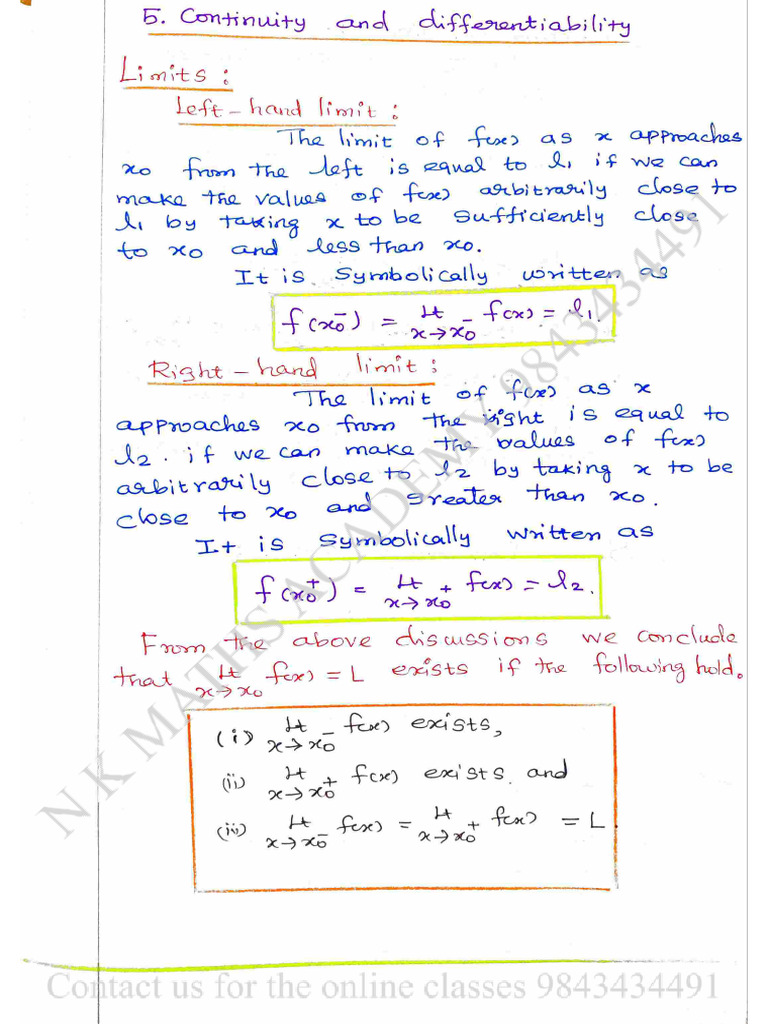 5. Continuity and differentiability
Limits:
Left-hand limit:
The limit of f(x) as x approaches
x0 from the left is equal to l1 if we can
make the values of f(x) arbitrarily close to
l1 by taking x to be sufficiently close
to x0 and less than x0.
It is symbolically written as
f(x0⁻) = Lt x→x0⁻ f(x) = l1.
Right-hand limit:
The limit of f(x) as x
approaches x0 from the right is equal to
l2. if we can make the values of f(x)
arbitrarily close to l2 by taking x to be
close to x0 and greater than x0.
It is symbolically written as
f(x0⁺) = Lt x→x0⁺ f(x) = l2.
From the above discussions we conclude
that Lt x→x0 f(x) = L exists if the following hold.
(i) Lt x→x0⁻ f(x) exists,
(ii) Lt x→x0⁺ f(x) exists and
(iii) Lt x→x0⁻ f(x) = Lt x→x0⁺ f(x) = L.
N K MATHS ACADEMY 9843434491
Contact us for the online classes 9843434491